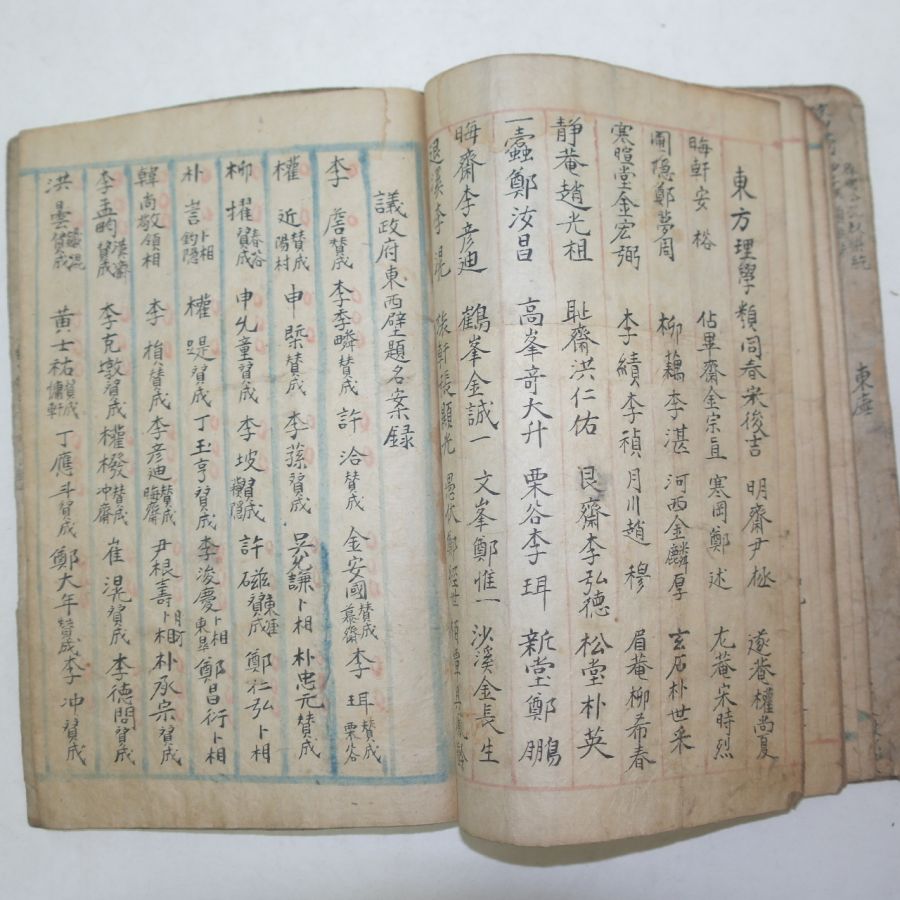 東方理學類 同春宋俊吉 明齋尹極 遂菴權尚夏
晦軒安裕 佔畢齋金宗直 寒岡鄭述 尤菴宋時烈
圃隱鄭夢周 柳藕 李湛 河西金麟厚 玄石朴世采
寒暄堂金宏弼 李績 李禎 月川趙穆 眉菴柳希春
靜菴趙光祖 恥齋洪仁佑 艮齋李弘德 松堂朴英
一蠹鄭汝昌 高峯奇大升 栗谷李珥 新堂鄭鵬
晦齋李彦迪 鶴峯金誠一 文峯鄭惟一 沙溪金長生
退溪李滉 張顯光
議政府東西壁題名案録
李詹賛成 李季疄賛成 許洽賛成 金安國賛成慕齋 李珥賛成栗谷
權近賛成陽村 申槩賛成 李蓀賛成 吳允謙卜相 朴忠元賛成
柳擢賛成 申允童賛成 李坡賛成 許磁賛成東崖 鄭仁弘卜相
朴訔卜相釣隱 權踶賛成 丁玉亨賛成 李浚慶卜相東皐 鄭昌衍卜相
韓尚敬領相 李損賛成 李彦迪賛成晦齋 尹根壽卜相月汀 朴承宗賛成
李孟畇賛成漢齋 李克墩賛成 權橃賛成冲齋 崔滉賛成 李德問賛成
洪曇賛成 黃士祐賛成慵軒 丁應斗賛成 鄭大年賛成 李冲賛成
東